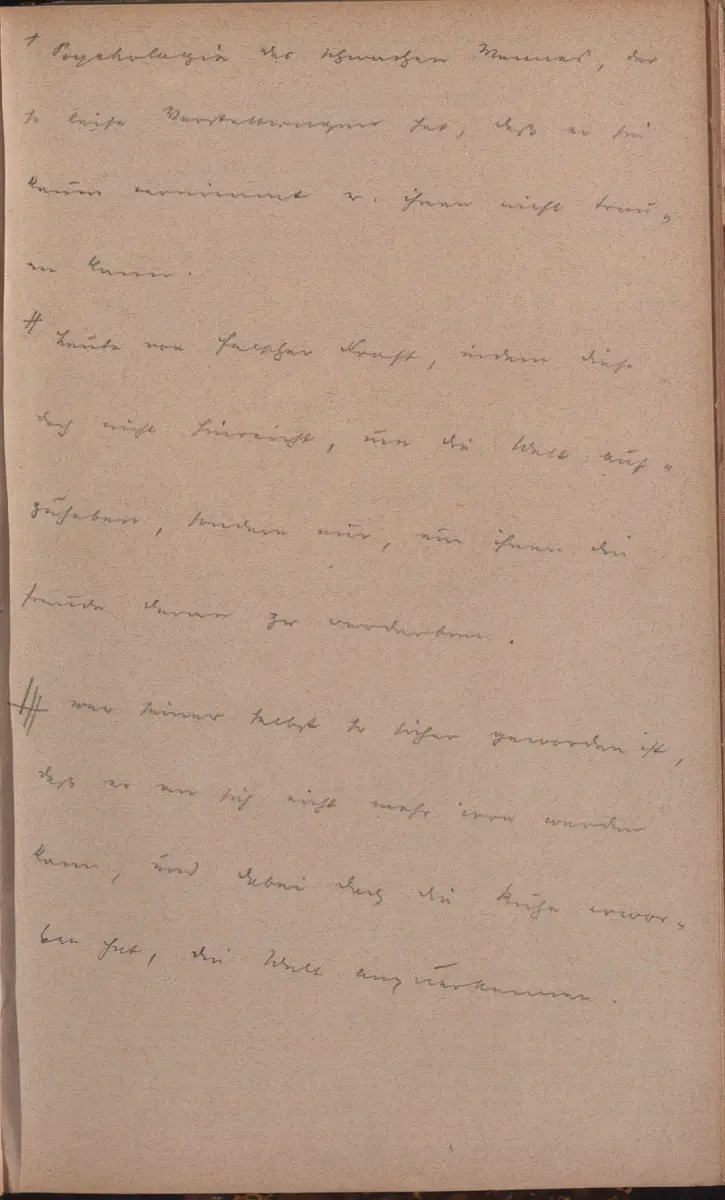 † Psychologie des schwachen Mannes, der
so leise Vorstellungen hat, daß er sie
kaum vernimmt u. ihnen nicht trau„
en kann.
Leute von falscher Kraft, indem diese
doch nicht hinreicht, um die Welt auf„
zuheben, sondern nur, um ihnen die
Freude daran zu verderben.
wer seiner selbst so sicher geworden ist,
daß er an sich nicht mehr irre werden
kann, und dabei doch die Ruhe erwor„
ben hat, die Welt anzuerkennen.